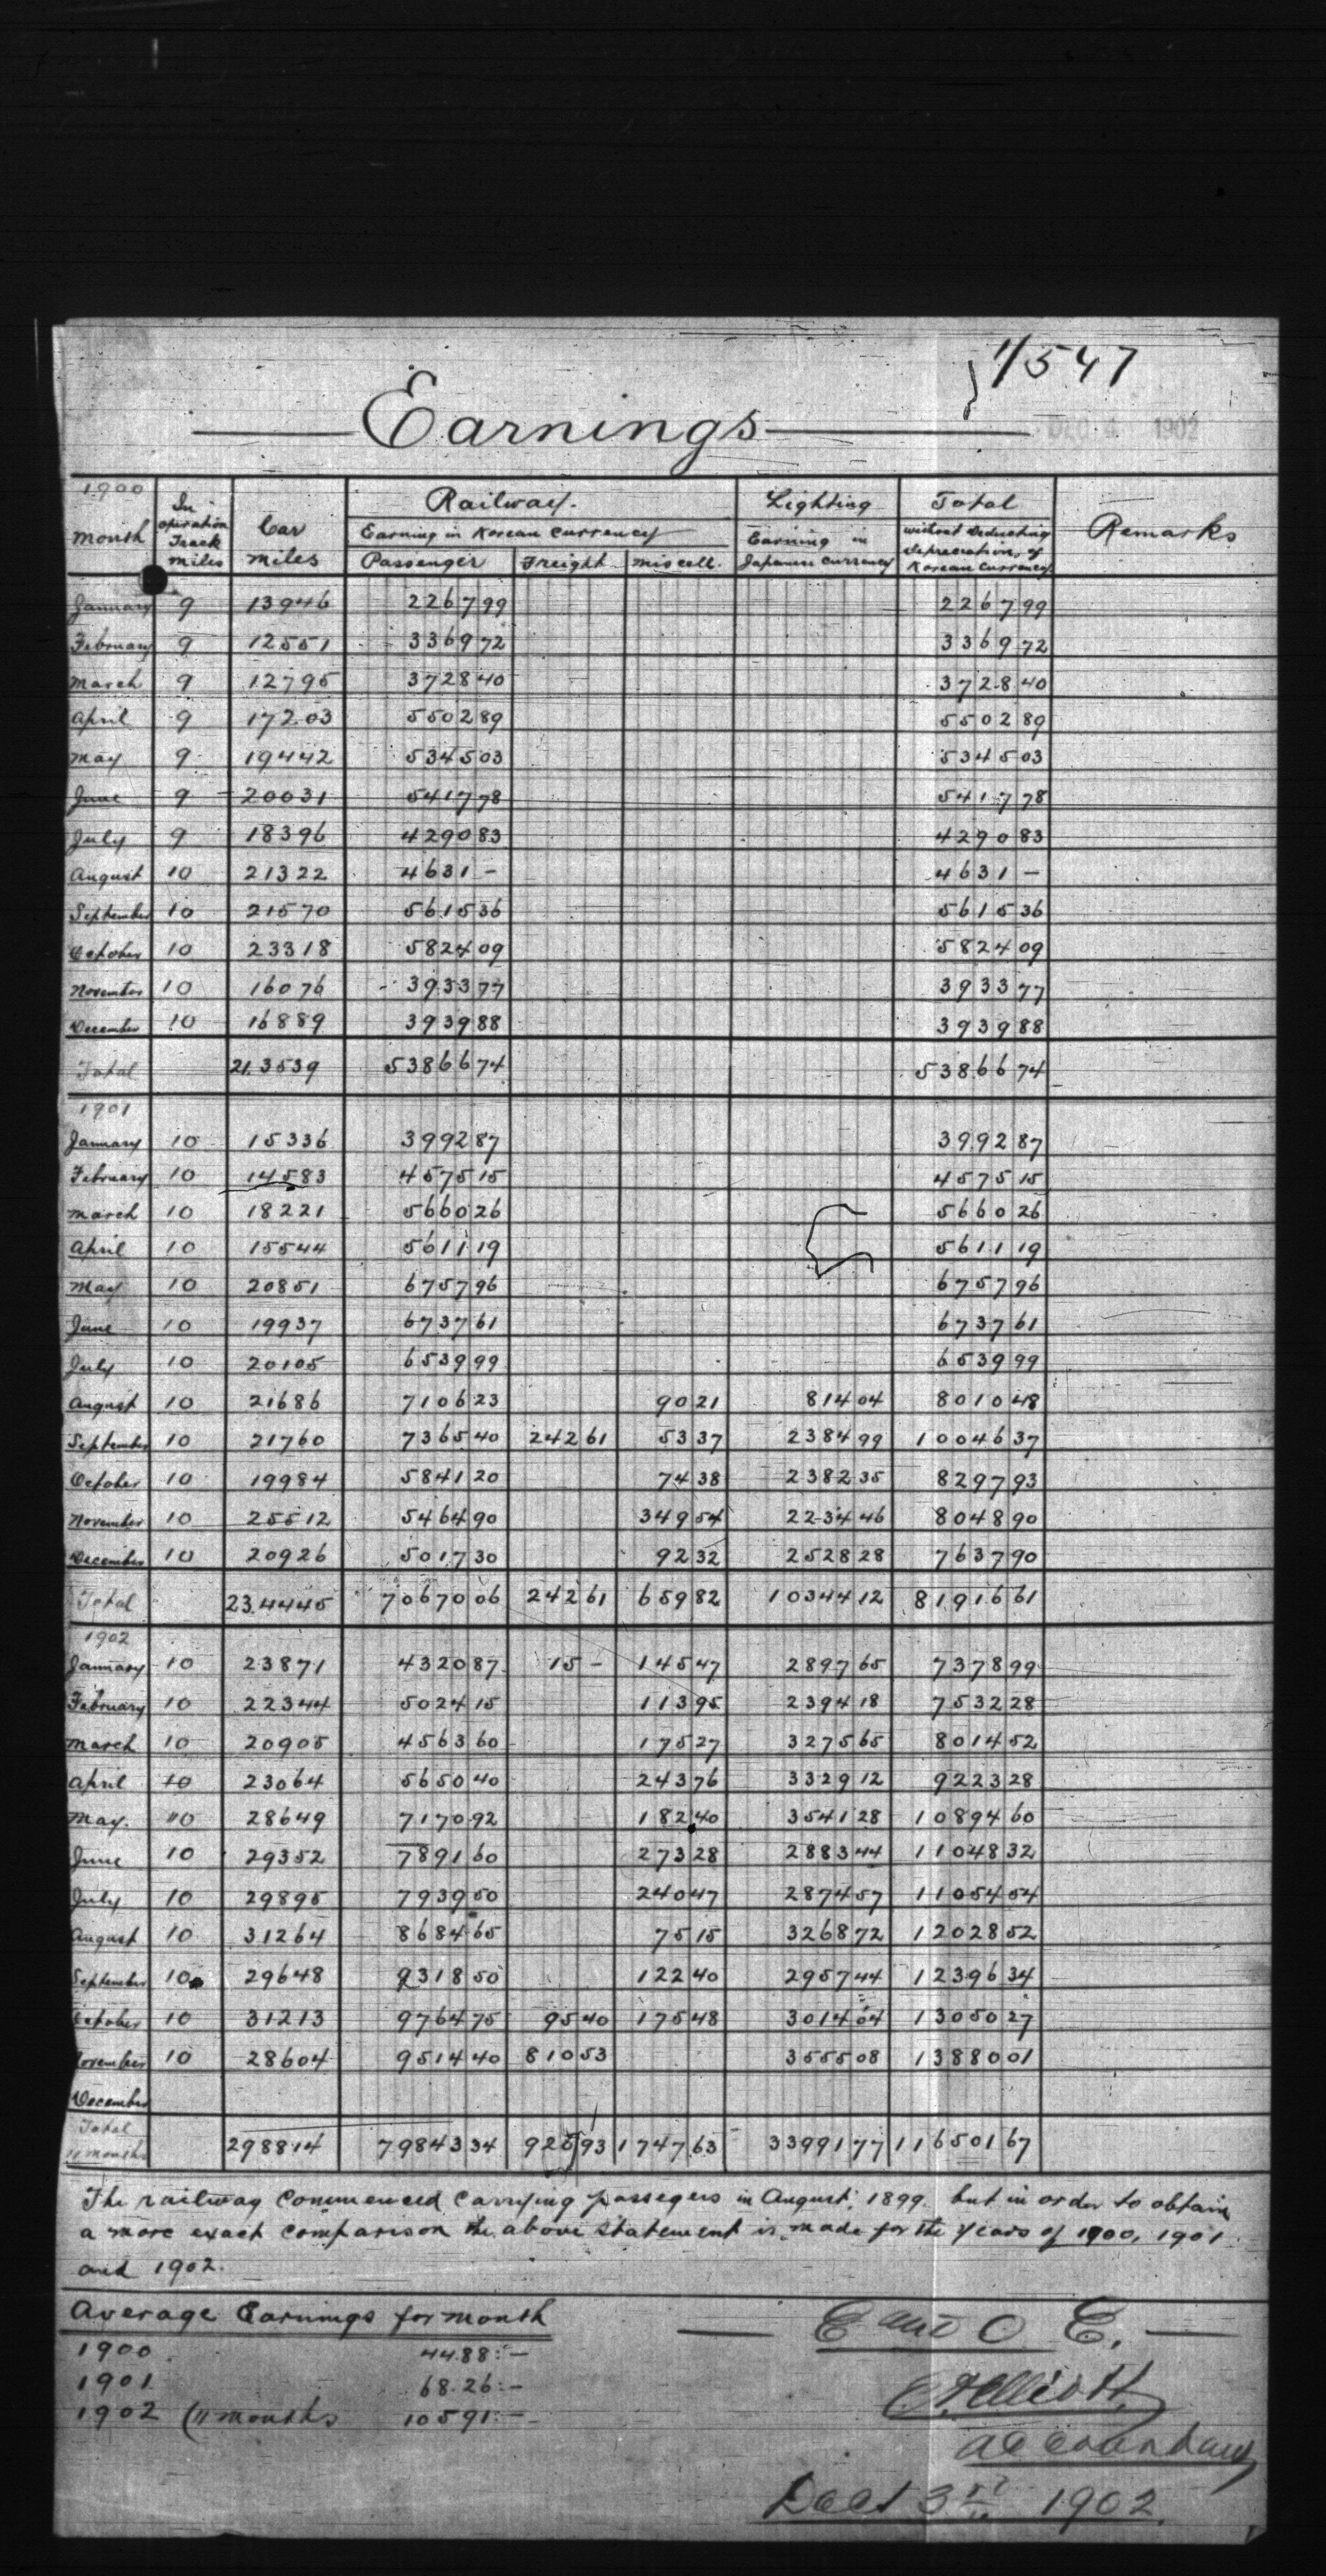 11547
Earnings
DEC 4 1902
1900
month In operation Track miles Car miles Railway. Lighting Total Remarks
Earning in Korean Currency Earning in Japanese Currency without deducting depreciation, of Korean Currency
Passenger Freight miscell.
January 9 13946 2267 99 2267 99
February 9 12551 3369 72 3369 72
march 9 12795 3728 40 3728 40
April 9 17203 5502 89 5502 89
may 9 19442 5345 03 5345 03
June 9 20031 5417 78 5417 78
July 9 18396 4290 83 4290 83
August 10 21322 4631 – 4631 –
September 10 21570 5615 36 5615 36
October 10 23318 5824 09 5824 09
November 10 16076 3933 77 3933 77
December 10 16889 3939 88 3939 88
Total 21.3539 53866 74 53866 74
1901
January 10 15336 3992 87 3992 87
February 10 14583 4575 15 4575 15
march 10 18221 5660 26 5660 26
April 10 15544 5611 19 5611 19
may 10 20851 6757 96 6757 96
June 10 19937 6737 61 6737 61
July 10 20105 6539 99 6539 99
August 10 21686 7106 23 90 21 814 04 8010 48
September 10 21760 7365 40 242 61 53 37 2384 99 10046 37
October 10 19984 5841 20 74 38 2382 35 8297 93
November 10 25512 5464 90 349 54 2234 46 8048 90
December 10 20926 5017 30 92 32 2528 28 7637 90
Total 23.4445 70670 06 242 61 659 82 10344 12 81916 61
1902
January 10 23871 4320 87 15 – 145 47 2897 65 7378 99
February 10 22344 5024 15 113 95 2394 18 7532 28
march 10 20905 4563 60 175 27 3275 65 8014 52
April 10 23064 5650 40 243 76 3329 12 9223 28
May. 10 28649 7170 92 182 40 3541 28 10894 60
June 10 29352 7891 60 273 28 2883 44 11048 32
July 10 29895 7939 50 240 47 2874 57 11054 54
August 10 31264 8684 65 75 15 3268 72 12028 52
September 10 29648 9318 50 122 40 2957 44 12396 34
October 10 31213 9764 75 95 40 175 48 3014 64 13050 27
November 10 28604 9514 40 810 53 3555 08 13880 01
December
Total 11 months 298814 79843 34 920 93 1747 63 33991 77 116501 67
The railway Commenced Carrying passegers in August, 1899. but in order to obtain
a more exact Comparison the above Statement is made for the years of 1900, 1901
and 1902.
Average Earnings for month
1900 4488:–
1901 68.26:–
1902 (11 months 10591:–
E and O E.
Elliott.
Accountant
Dect 3rd 1902.